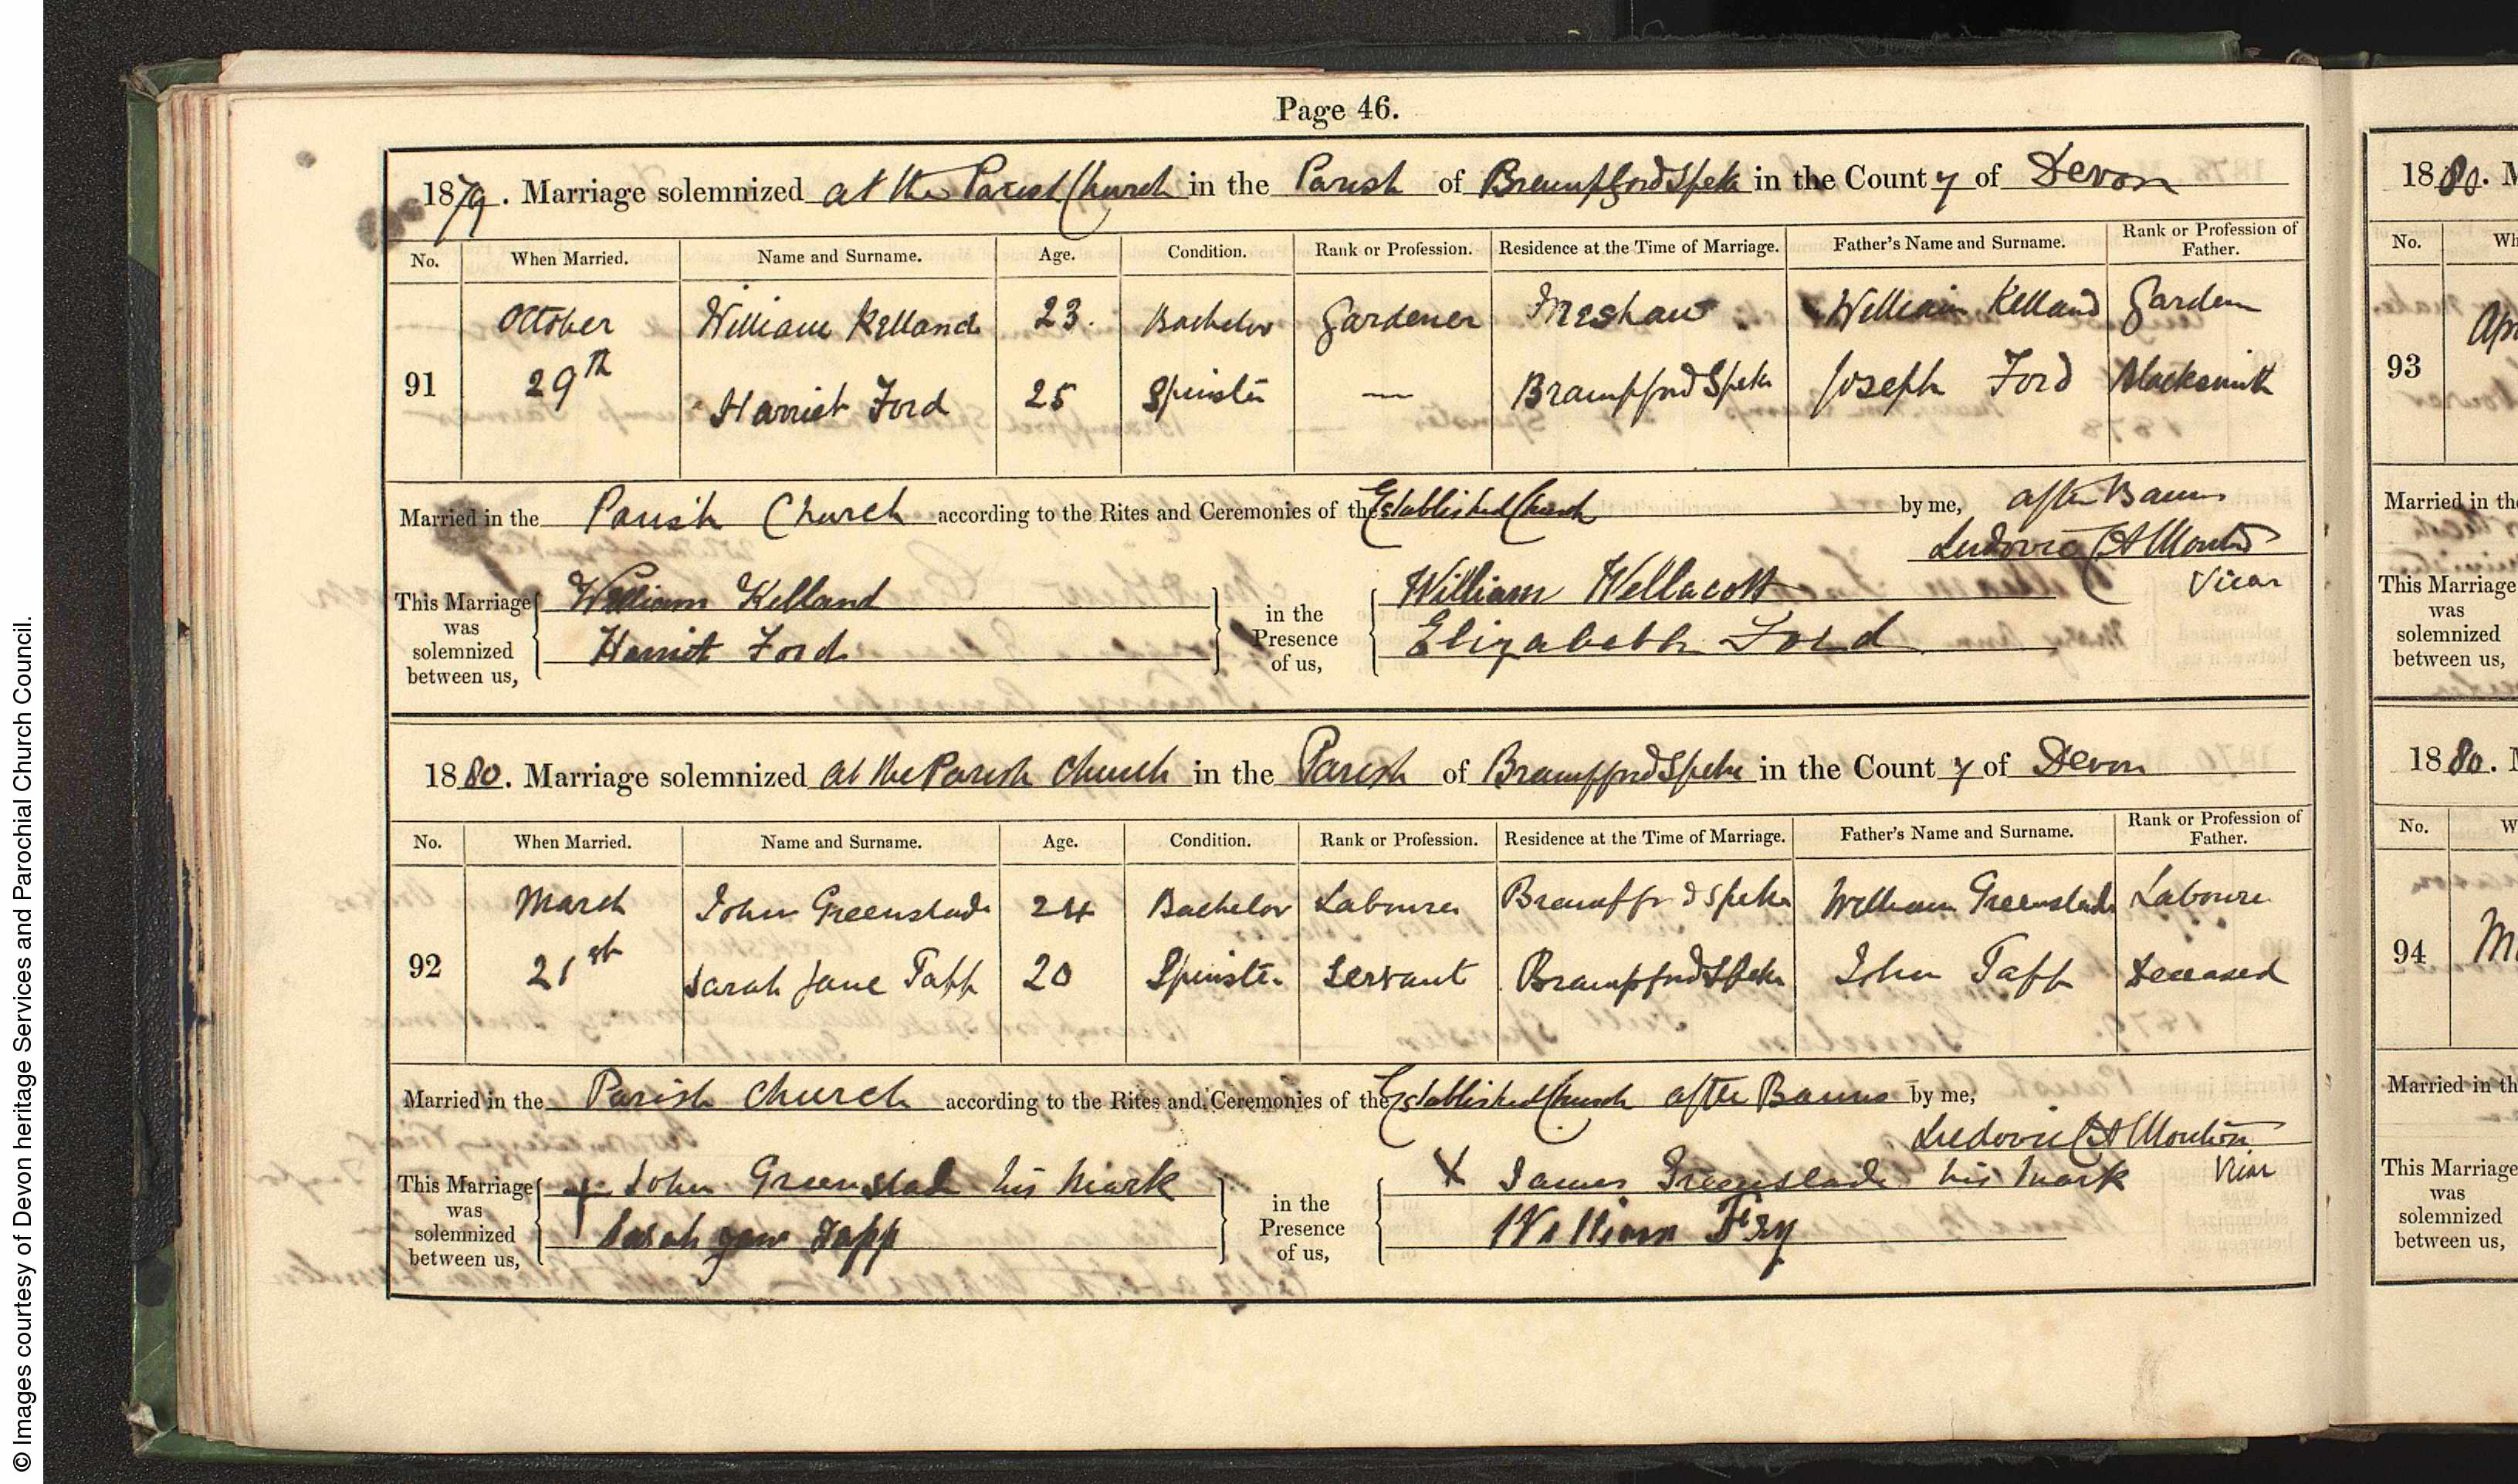 Page 46.
1879. Marriage solemnized at the Parish Church in the Parish of Brampford Speke in the County of Devon
No. When Married. Name and Surname. Age. Condition. Rank or Profession. Residence at the Time of Marriage. Father's Name and Surname. Rank or Profession of Father.
October William Kelland 23. Bachelor Gardener Meshaw. William Kelland Garden
91 29th Harriet Ford 25 Spinster — Brampford Speke Joseph Ford Blacksmith
Married in the Parish Church according to the Rites and Ceremonies of the Established Church by me, after Banns
Ludovic
Vicar
This Marriage was solemnized between us, William Kelland
Harriet Ford
in the Presence of us, William Wellacott
Elizabeth Ford
1880. Marriage solemnized at the Parish Church in the Parish of Brampford Speke in the County of Devon
No. When Married. Name and Surname. Age. Condition. Rank or Profession. Residence at the Time of Marriage. Father's Name and Surname. Rank or Profession of Father.
March John Greenslade 24 Bachelor Labourer Brampford Speke William Greenslade Labourer
92 21st Sarah Jane Tapp 20 Spinster Servant Brampford Speke John Tapp Deceased
Married in the Parish Church according to the Rites and Ceremonies of the Established Church after Banns by me,
Ludovic
Vicar
This Marriage was solemnized between us, + John Greenslade his Mark
Sarah Jane Tapp
in the Presence of us, X James Greenslade his mark
William Fry
1880. M
No. Wh
Ap
93
Married in the
This Marriage
was
solemnized
between us,
1880. M
No. W
94 M
Married in th
This Marriage
was
solemnized
between us,
© Images courtesy of Devon heritage Services and Parochial Church Council.